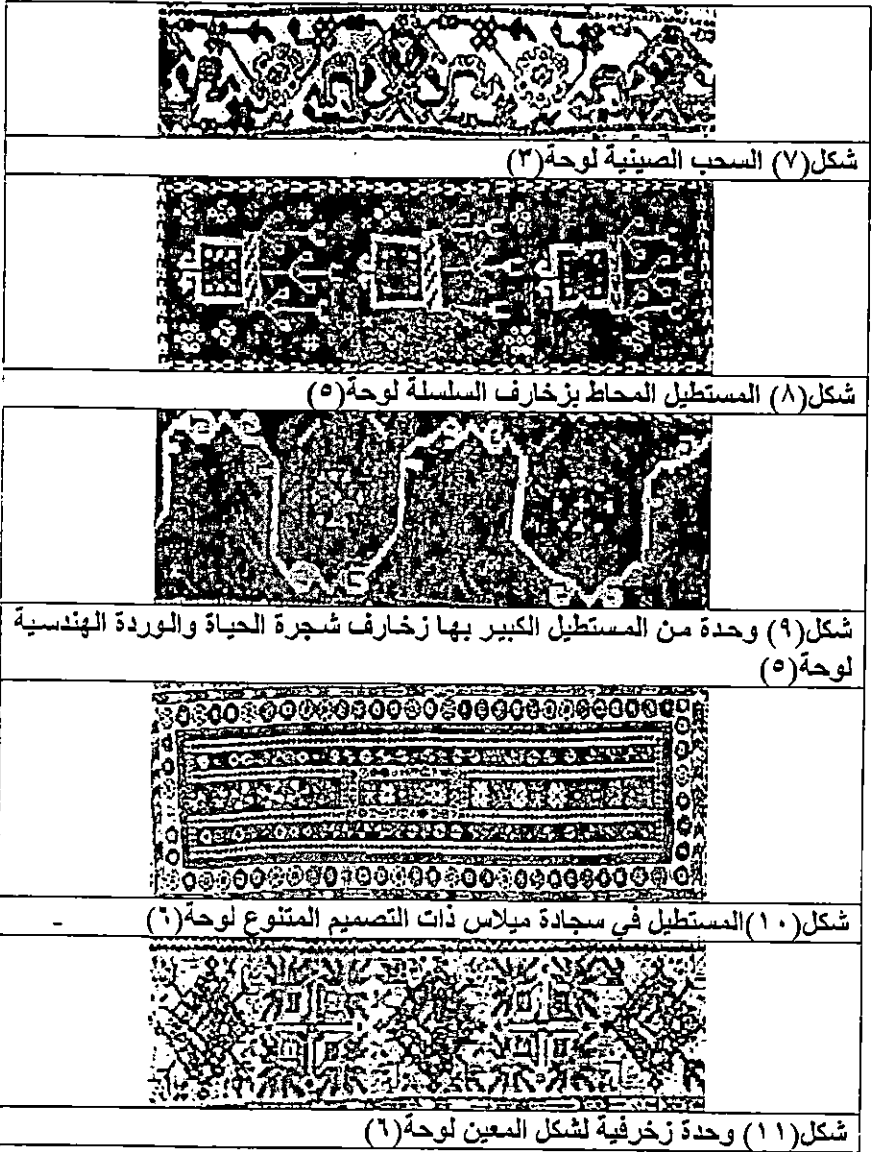 شكل(٧) السحب الصينية لوحة(٣)
شكل(٨) المستطيل المحاط بزخارف السلسلة لوحة(٥)
شكل(٩) وحدة من المستطيل الكبير بها زخارف شجرة الحياة والوردة الهندسية
لوحة(٥)
شكل(١٠)المستطيل في سجادة ميلاس ذات التصميم المتنوع لوحة(٦)
شكل(١١) وحدة زخرفية لشكل المعين لوحة(٦)